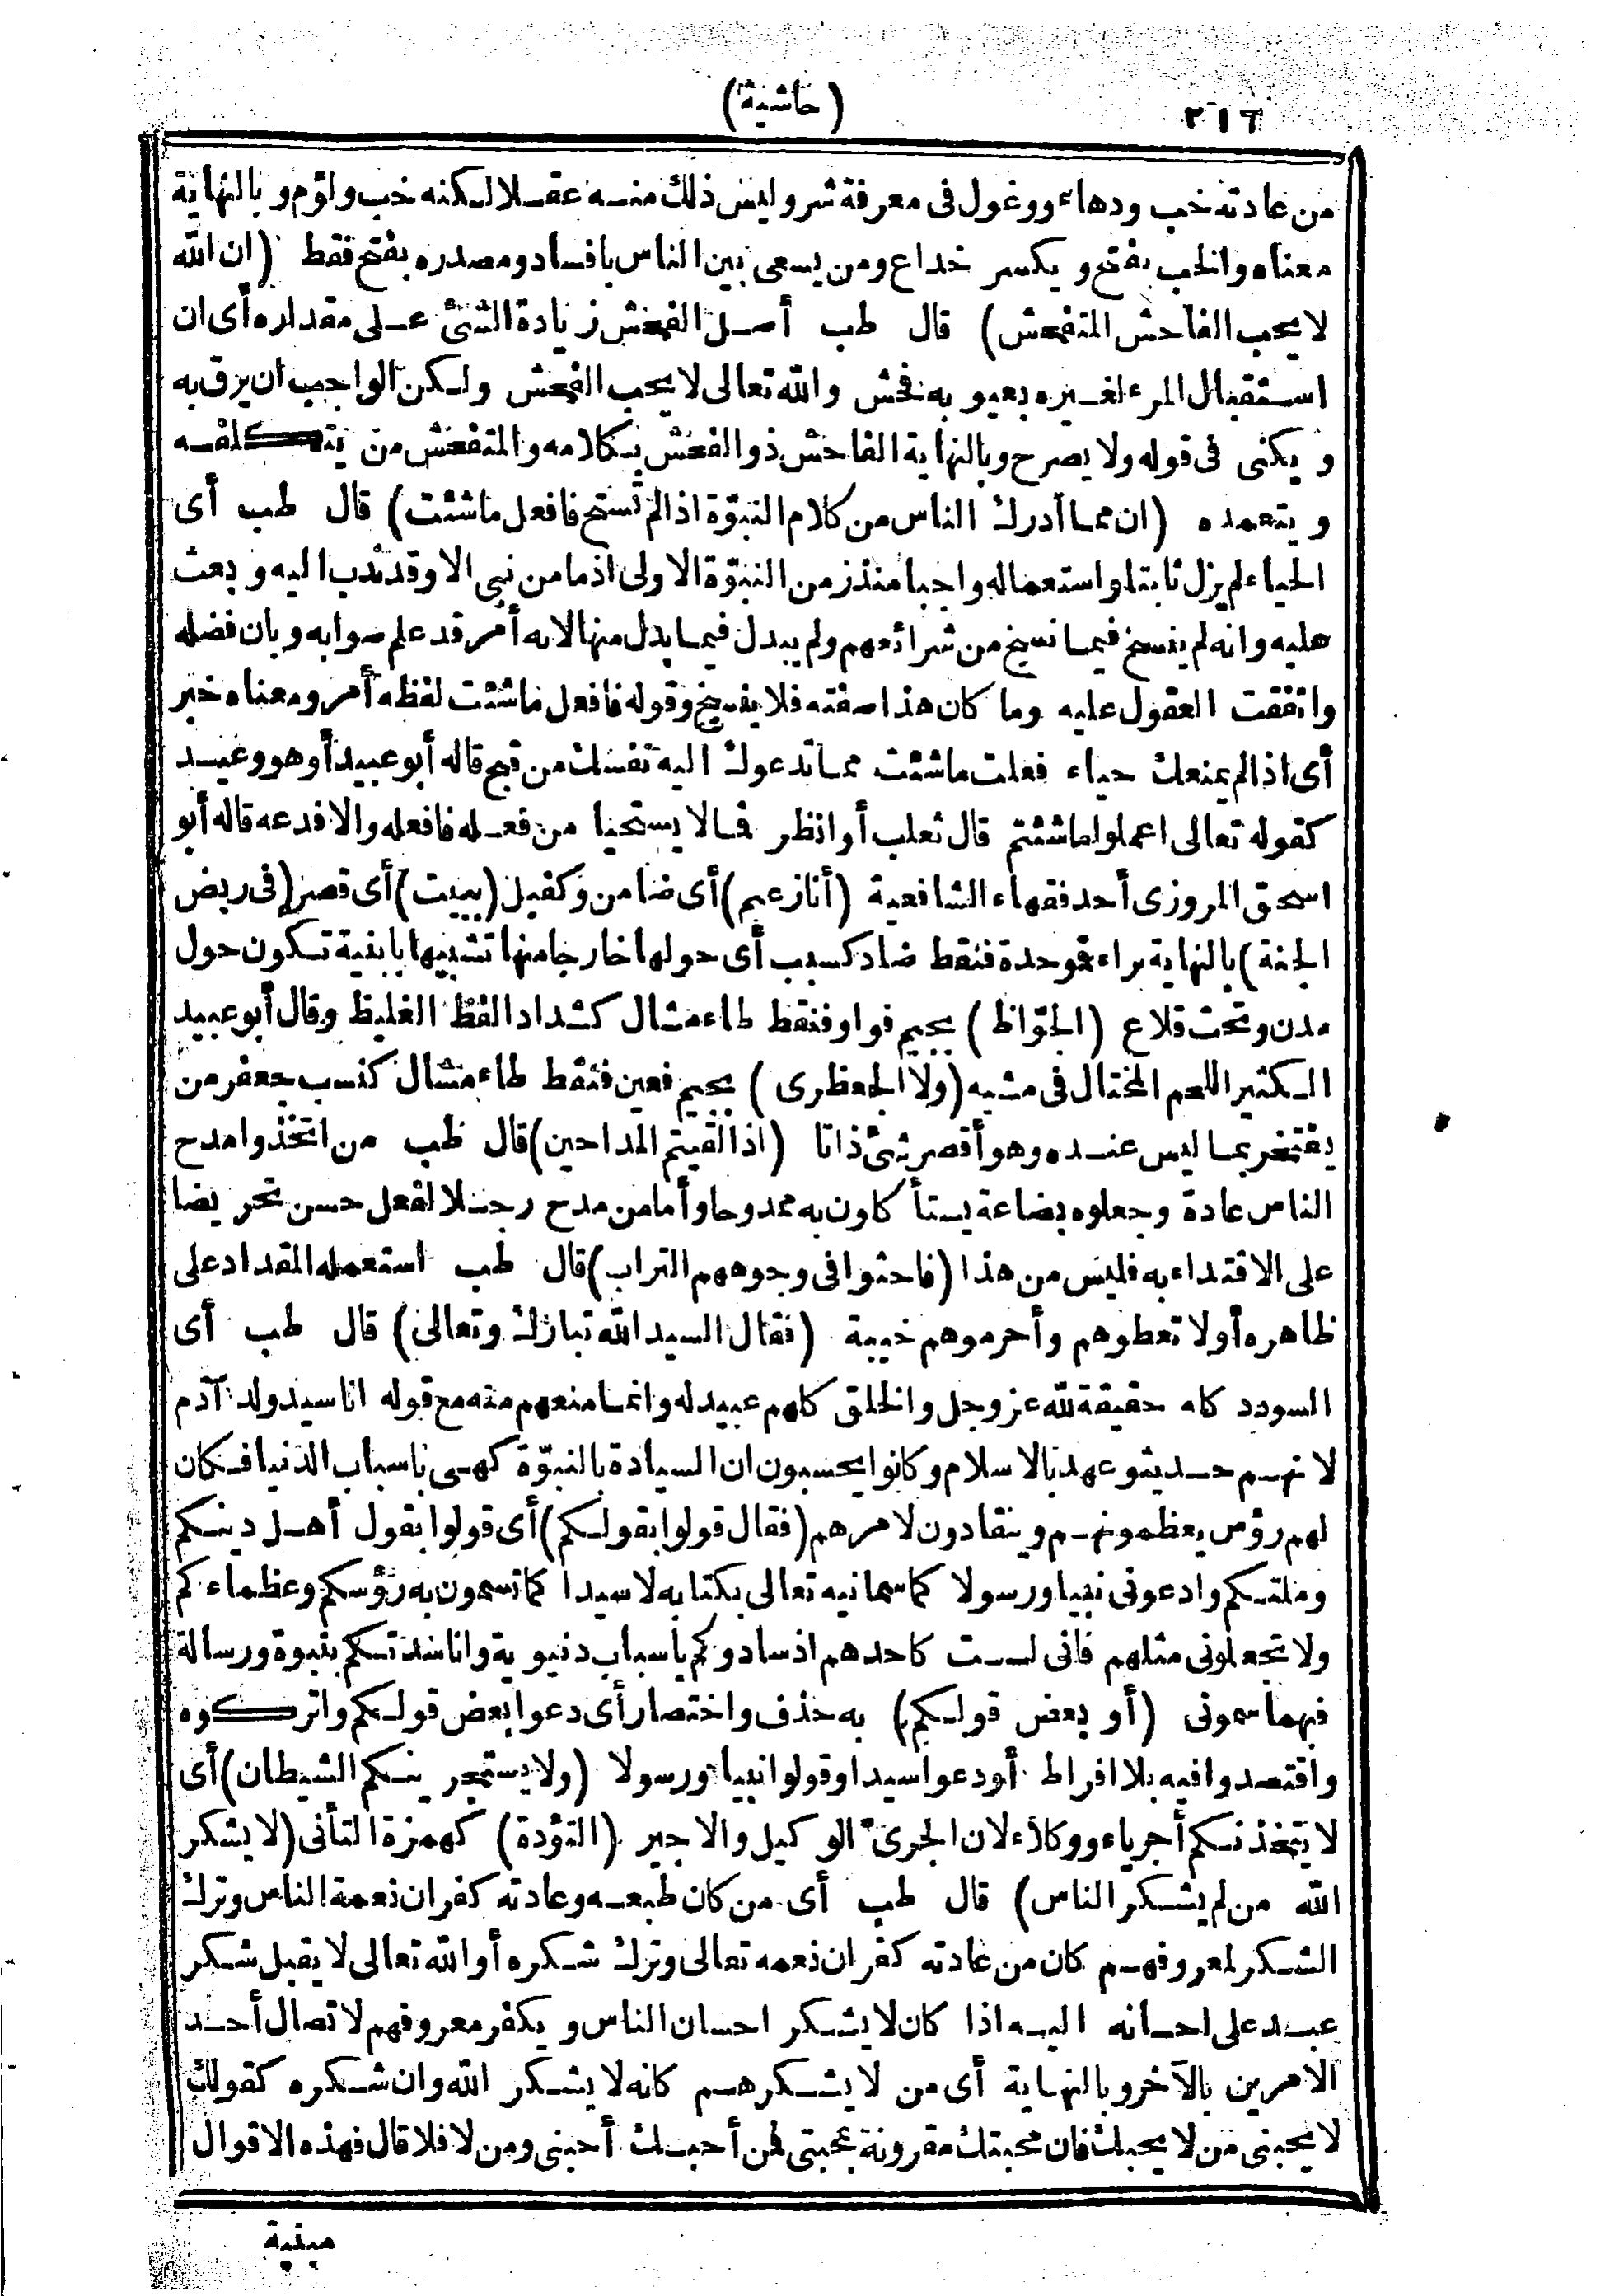 ٢١٦
(حاشية)
من عادته خب ودهاء ووغول فى معرفة شر وليس ذلك منه عقلا لكنه خب ولؤم وبالنهاية
معناه والخب بفتح ويكسر خداع ومن يسعى بين الناس بافساد ومصدره بفتح فقط (ان الله
لا يحب الفاحش المتفحش) قال طب أصل الفحش زيادة الشئ على مقداره أى ان
استقبال المرء لغيره بعيوبه فحش والله تعالى لا يحب الفحش ولكن الواجب ان يرق به
ويكنى فى قوله ولا يصرح وبالنهاية الفاحش ذو الفحش بكلامه والمتفحش من يتكلفه
ويتعمده (ان مما أدرك الناس من كلام النبوّة اذا لم تستح فافعل ما شئت) قال طب أى
الحياء لم يزل ثابتا واستعماله واجبا منذ زمن النبوّة الاولى اذ ما من نبى الا وقد ندب اليه وبعث
عليه وانه لم ينسخ فيما نسخ من شرائعهم ولم يبدل فيما بدل منها لانه أمر قد علم صوابه وبان فضله
واتفقت العقول عليه وما كان هذا صفته فلا ينسخ وقوله فافعل ما شئت لفظه أمر ومعناه خبر
أى اذا لم يمنعك حياء فعلت ما شئت مما تدعوك اليه نفسك من قبح قاله أبو عبيد أو هو وعيد
كقوله تعالى اعملوا ما شئتم قال ثعلب أو انظر فما لا يستحيا من فعله فافعله والا فدعه قاله أبو
اسحق المروزى أحد فقهاء الشافعية (أنا زعيم) أى ضامن وكفيل (ببيت) أى قصر (فى ربض
الجنة) بالنهاية براء فموحدة فنقط ضاد كسبب أى حولها خارجا منها تشبيها بابنية تكون حول
مدن وتحت قلاع (الجوّاظ) بجيم فواو فنقط طاء مشال كشداد الفظ الغليظ وقال أبو عبيد
الكثير اللحم المختال فى مشيه (ولا الجعظرى) بجيم فعين فنقط طاء مشال كنسب جعفر من
يفتخر بما ليس عنده وهو أقصر شئ ذاتا (اذا لقيتم المداحين) قال طب من اتخذوا مدح
الناس عادة وجعلوه بضاعة يستأكلون به ممدوحا وأما من مدح رجلا لفعل حسن تحريضا
على الاقتداء به فليس من هذا (فاحثوا فى وجوههم التراب) قال طب استعمله المقداد على
ظاهره أو لا تعطوهم وأحرموهم خيبة (فقال السيد الله تبارك وتعالى) قال طب أى
السودد كله حقيقة لله عز وجل والخلق كلهم عبيد له وانما منعهم منه مع قوله انا سيد ولد آدم
لانهم حديثو عهد بالاسلام وكانوا يحسبون ان السيادة بالنبوّة كهى باسباب الدنيا فكان
لهم رؤس يعظمونهم وينقادون لامرهم (فقال قولوا بقولكم) أى قولوا بقول أهل دينكم
وملتكم وادعونى نبيا ورسولا كما سمانيه تعالى بكتابه لا سيدا كما تسمون به رؤسكم وعظماءكم
ولا تجعلونى مثلهم فانى لست كاحدهم اذ سادوكم باسباب دنيوية وانا سدتكم بنبوة ورسالة
فبهما سمونى (أو بعض قولكم) به حذف واختصار أى دعوا بعض قولكم واتركوه
واقتصدوا فيه بلا افراط أو دعوا سيدا وقولوا نبيا ورسولا (ولا يستجرينكم الشيطان) أى
لا يتخذنكم أجرياء ووكلاء لان الجرىّ الوكيل والاجير (التؤدة) كهمزة التأنى (لا يشكر
الله من لم يشكر الناس) قال طب أى من كان طبعه وعادته كفران نعمة الناس وترك
الشكر لمعروفهم كان من عادته كفران نعمه تعالى وترك شكره أو الله تعالى لا يقبل شكر
عبد على احسانه اليه اذا كان لا يشكر احسان الناس ويكفر معروفهم لاتصال أحد
الامرين بالآخر وبالنهاية أى من لا يشكرهم كانه لا يشكر الله وان شكره كقولك
لا يحبنى من لا يحبك فان محبتك مقرونة بمحبتى فمن أحبك أحبنى ومن لا فلا قال فهذه الاقوال
مبنية